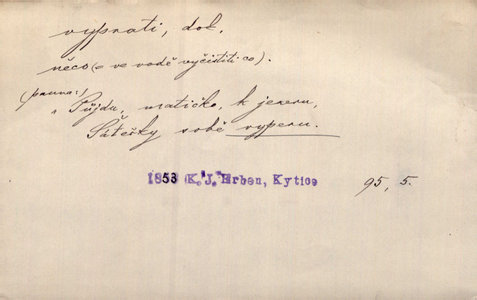 vyprati, dok.
něco (= ve vodě vyčistiti co).
(panna:)
„Půjdu, matičko, k jezeru,
Šátečky sobě vyperu.
1853 (K. J. Erben, Kytice 95, 5.